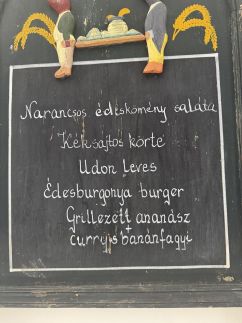 Narancsos édeskömény saláta
Kéksajtos körte
Udon leves
Édesburgonya burger
Grillezett ananász
+
currys banánfagyi